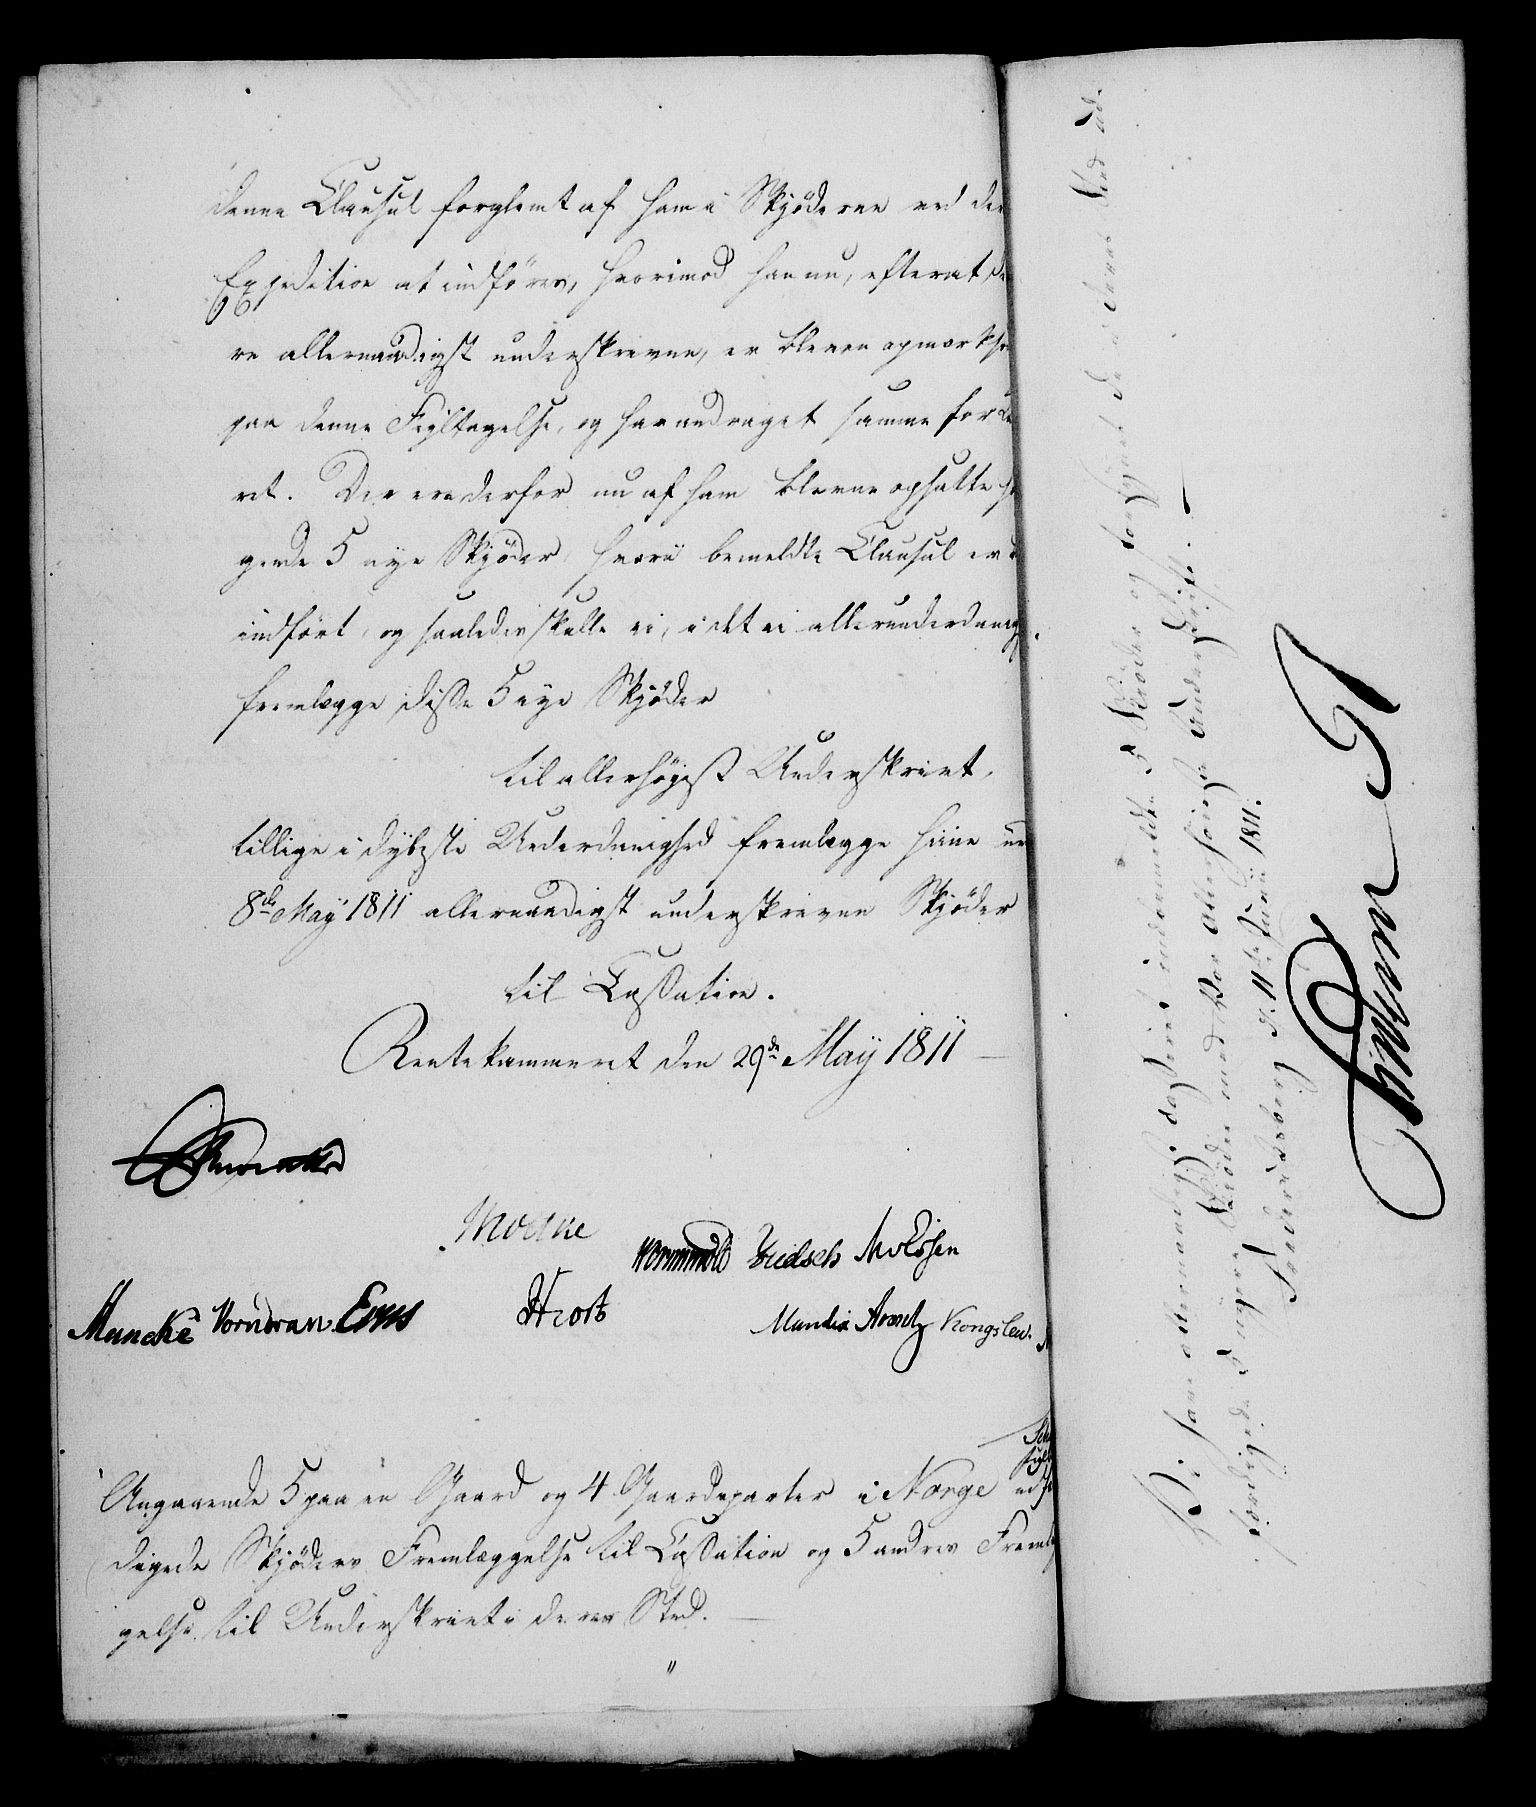 denne Clausul forglemt af ham i Skjøderne ved der
Expedition at indføres, hvorimod han nu, efterat
re allernaadigst underskrevne, er bleven opmærksom
paa denne Fejltagelse, og har andraget samme for
ret. Der ere derfor nu af ham blevne opsatte
gende 5 nye Skjøder, hvori bemeldte Clausul er
indført, og saaledes skulle vi, i det vi allerunderdanigst
fremlægge disse 5 nye Skjøder
til allerhøjest Underskrivt,
tillige i dybeste Underdanighed fremlægge hine
8de Maÿ 1811 allernaadigst underskrevne Skjøder
til Cassation.
Rentekammeret den 29de Maÿ 1811
Moltke
Wormskiold
Monrad
Vorndran
Hiort
Mandix Arentz Kongslew.
Angaaende 5 paa en Gaard og 4 Gaardeparter i Norge
digede Skjøders Fremlæggelse til Cassation og 5 andres Fremlæg
gelse til Underskrivt i deres Sted.
Vi have allernaadigst casseret indbemeldte 5 Skiøder og forsÿnet de i deres Sted ud-
færdigede 5 nÿe Skiøder med Vor Allerhøieste Underskrift.
Frederiksberg d. 11te Junii 1811.
Friderich R